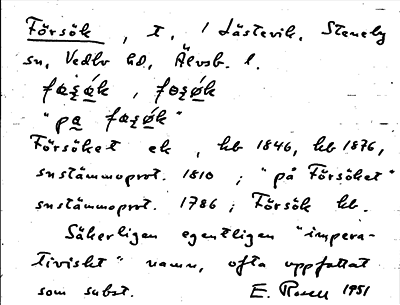 Försök, t, i Låstevik, Steneby
sn, Vedbo hd, Älvsb. l.
Försöket ek, hb 1846, hb 1876,
snstämmoprot. 1810; "på Försöket"
snstämmoprot. 1786; Försök kb.
Säkerligen egentligen "impera-
tiviskt" namn, ofta uppfattat
som subst. E. Rosell 1951